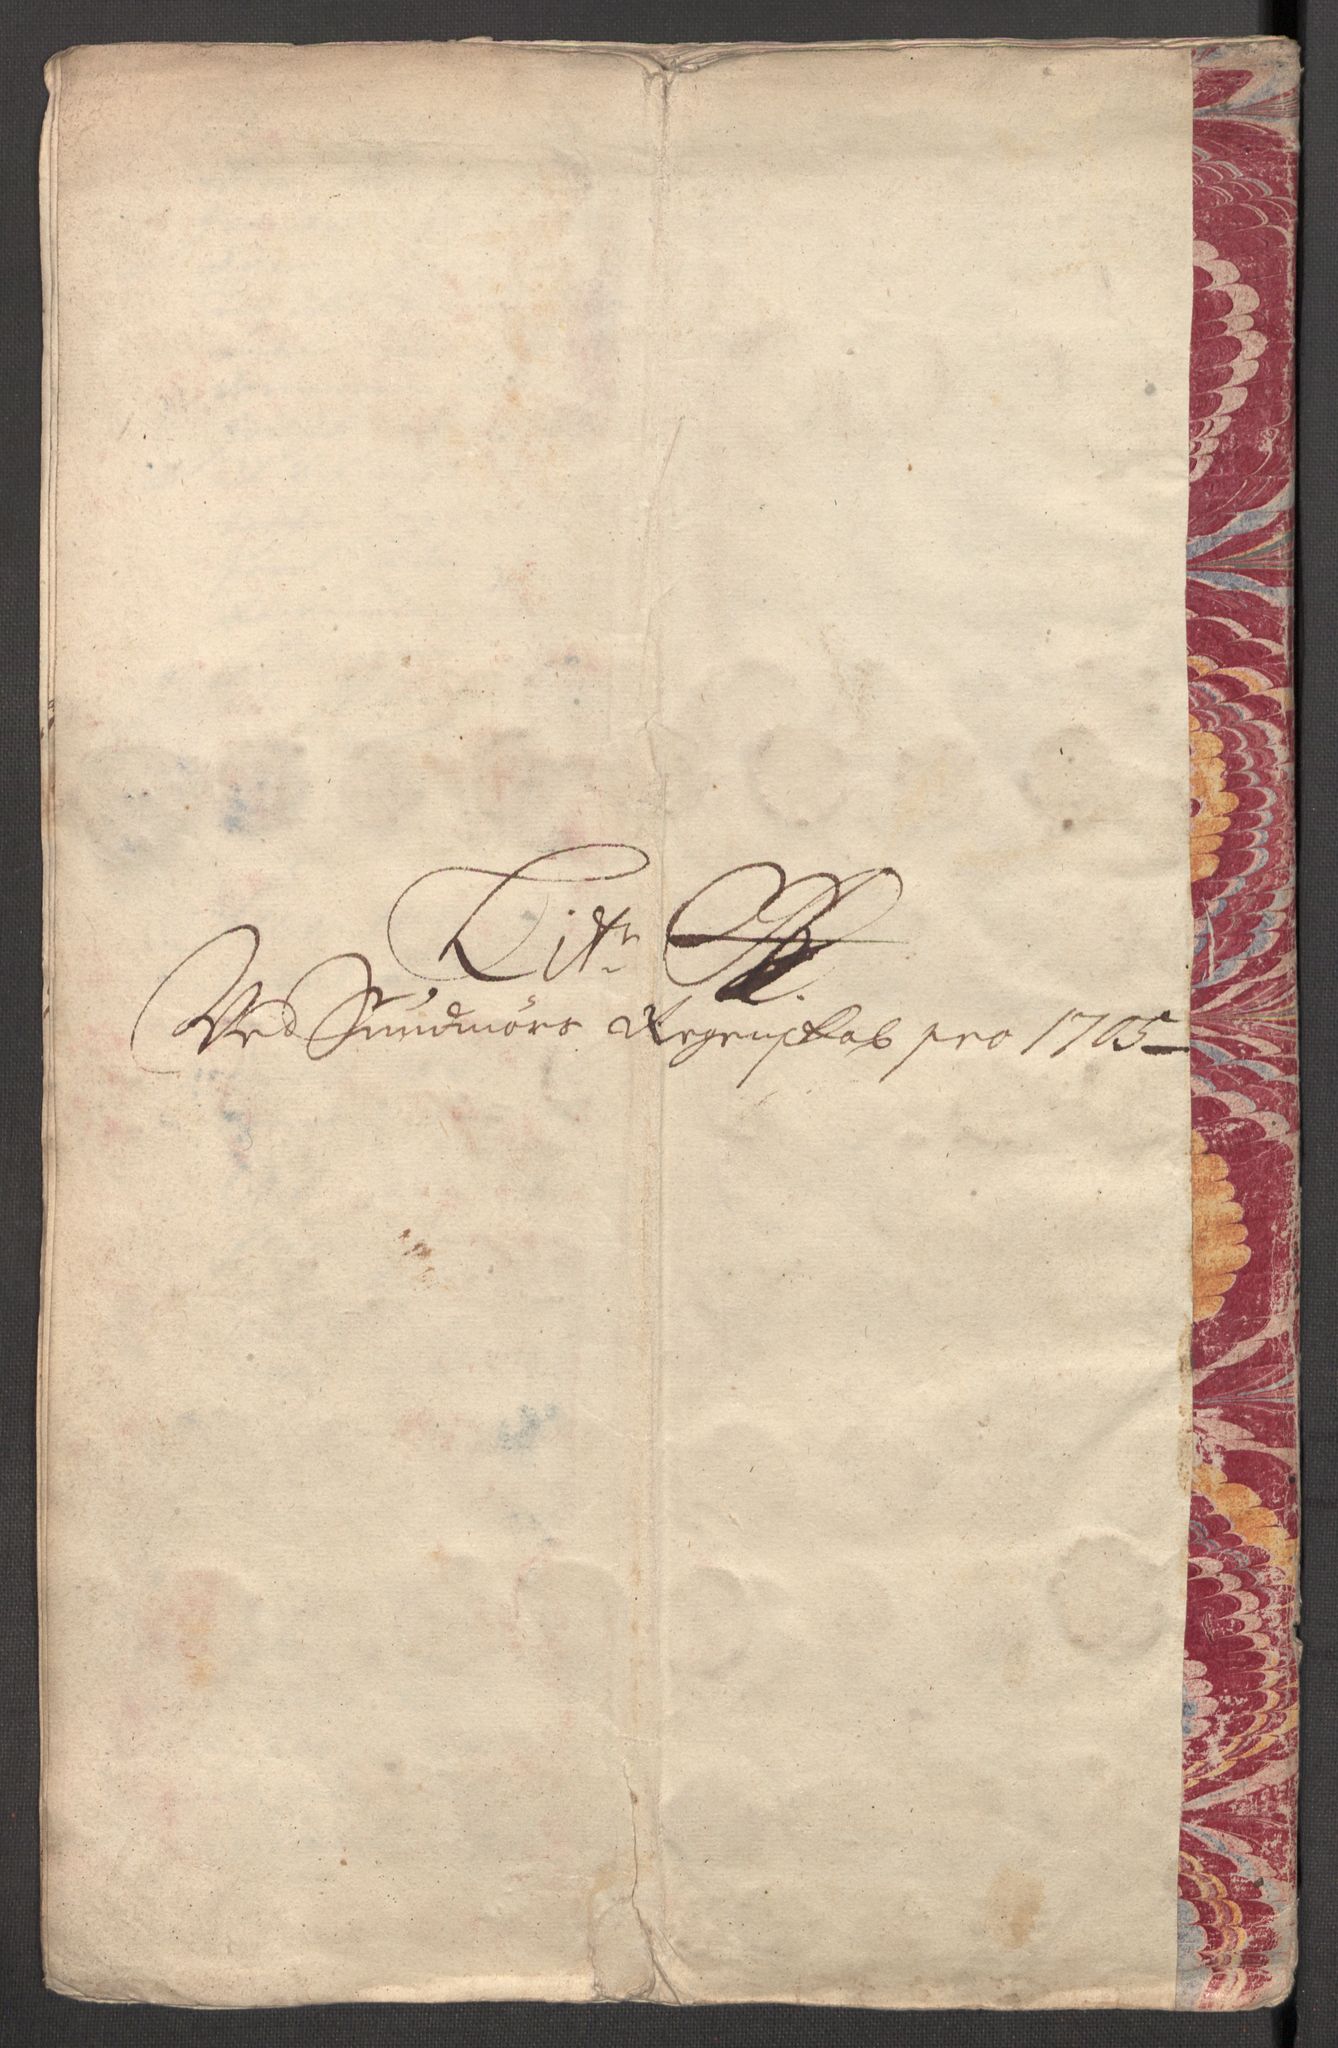 Litr
Ved Sundmörs Regenskab pro 1705